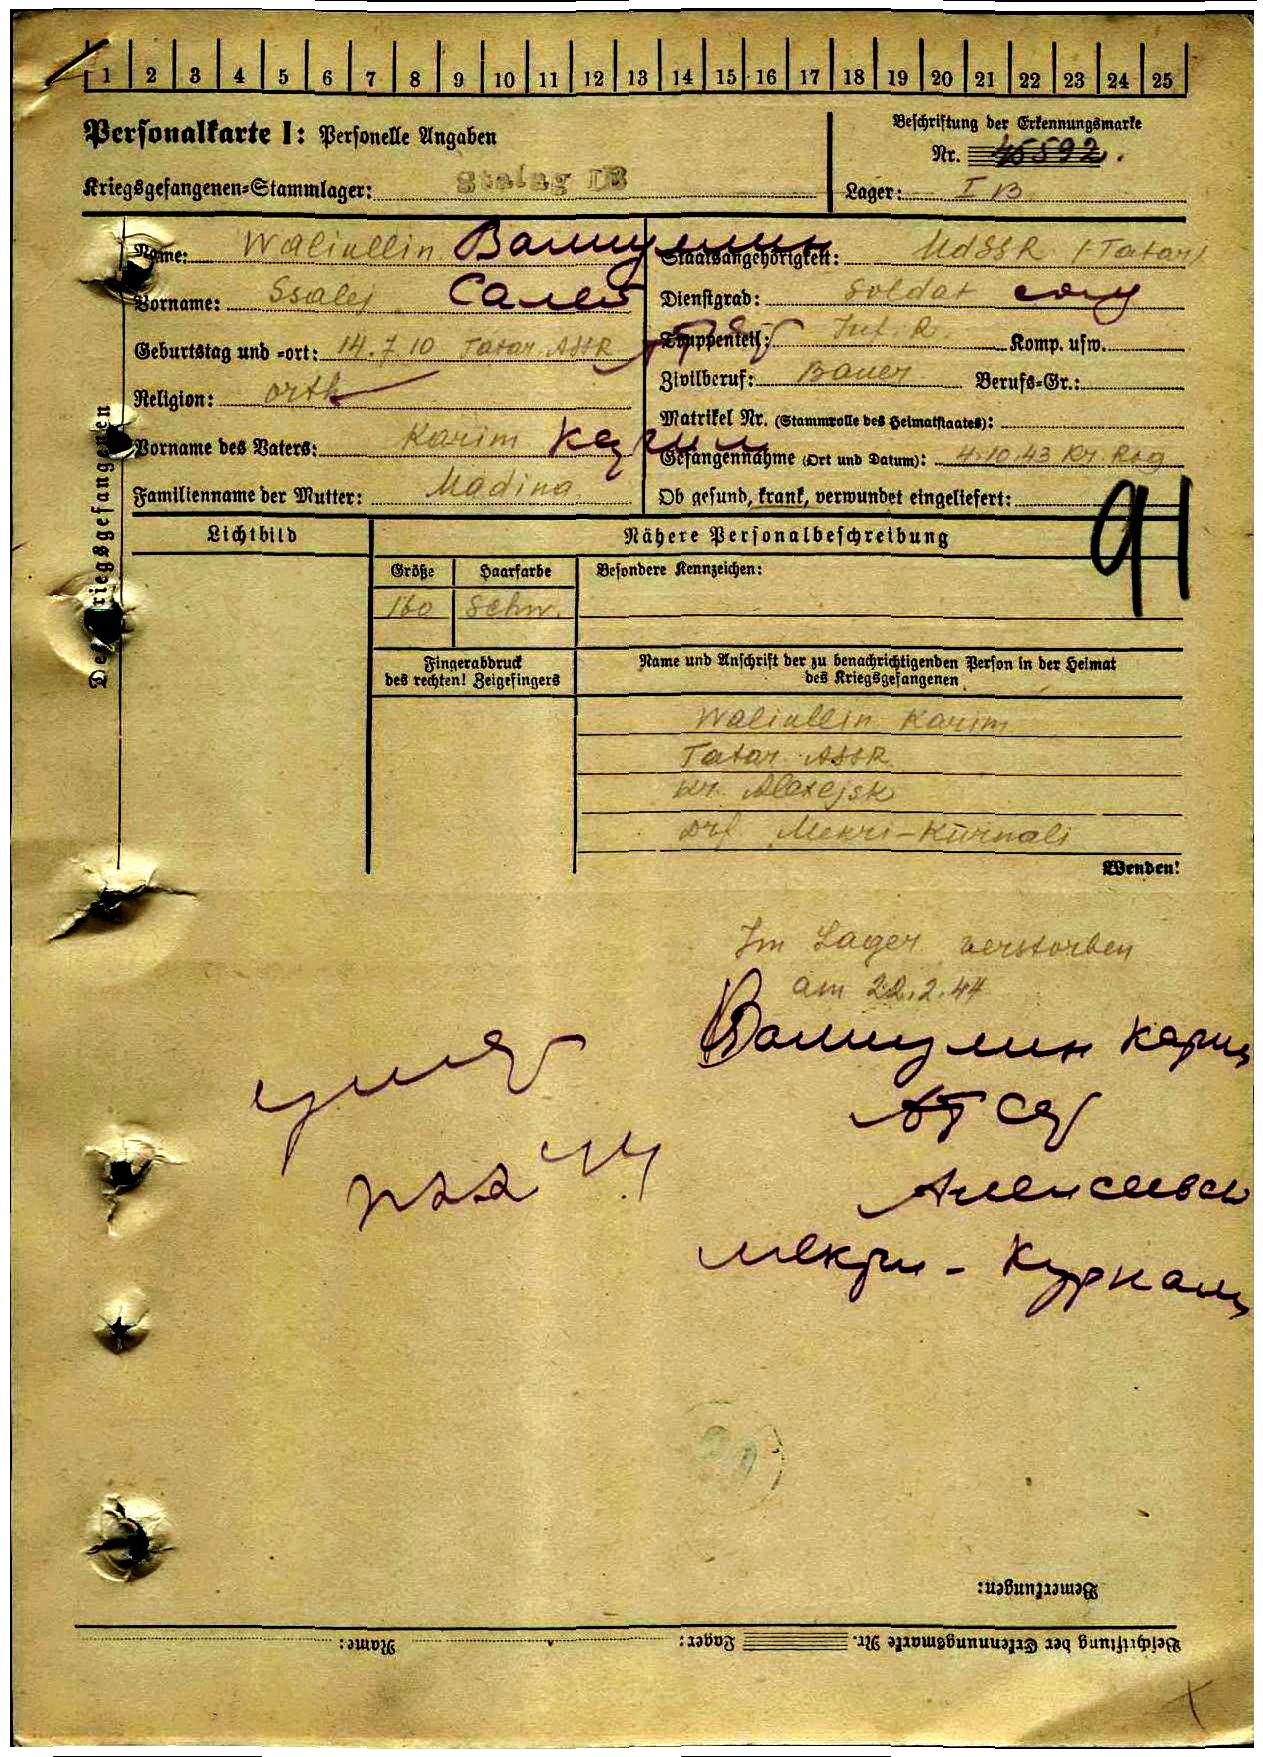 1 2 3 4 5 6 7 8 9 10 11 12 13 14 15 16 17 18 19 20 21 22 23 24 25
Personalkarte I: Personelle Angaben
Beschriftung der Erkennungsmarke
Nr. 45592.
Kriegsgefangenen=Stammlager: Stalag IB
Lager: I B
Des Kriegsgefangenen
Name: Waliullin Валиулин
Staatsangehörigkeit: UdSSR (Tatar)
Vorname: Ssalej Салей
Dienstgrad: Soldat сол
Geburtstag und =ort: 14.7.10 Tatar ASSR
Truppenteil: Inf. R. Komp. usw.
Religion: orth
Zivilberuf: Bauer Berufs=Gr.:
Matrikel Nr. (Stammrolle des Heimatstaates):
Vorname des Vaters: Karim Карим
Gefangennahme (Ort und Datum): 4.10.43 Kr. Rog
Familienname der Mutter: Madina
Ob gesund, krank, verwundet eingeliefert:
91
Lichtbild
Nähere Personalbeschreibung
Größe Haarfarbe Besondere Kennzeichen:
160 Schw.
Fingerabdruck
des rechten! Zeigefingers
Name und Anschrift der zu benachrichtigenden Person in der Heimat
des Kriegsgefangenen
Waliullin Karim
Tatar ASSR
Kr. Alexejsk
Drf Mekri-Kurnali
Wenden!
Im Lager verstorben
am 22.2.44
Валиулин Карим
АТССР
Алексеевск
Мекри-Курнали
умер
Bemerkungen:
Beschriftung der Erkennungsmarke Nr. Lager: Name: